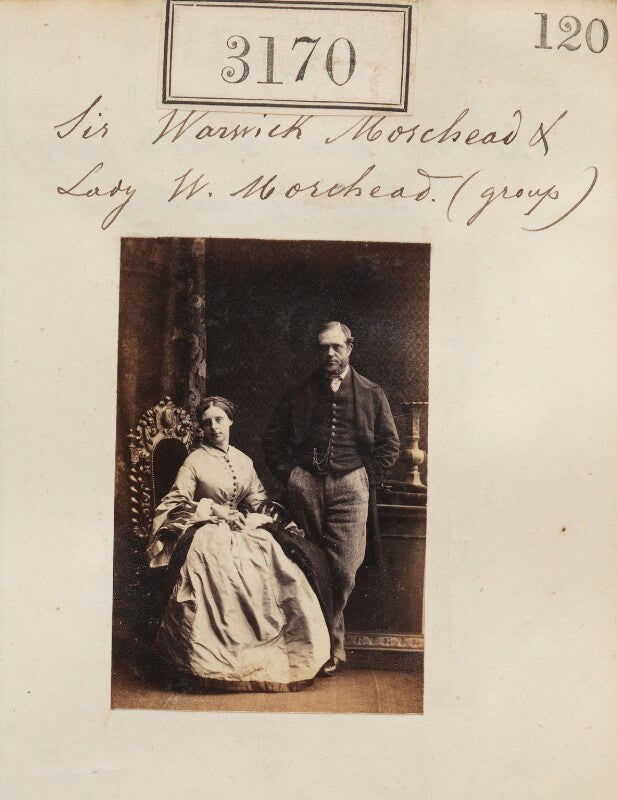 3170
120
Sir Warwick Morshead &
Lady W. Morshead. (group)